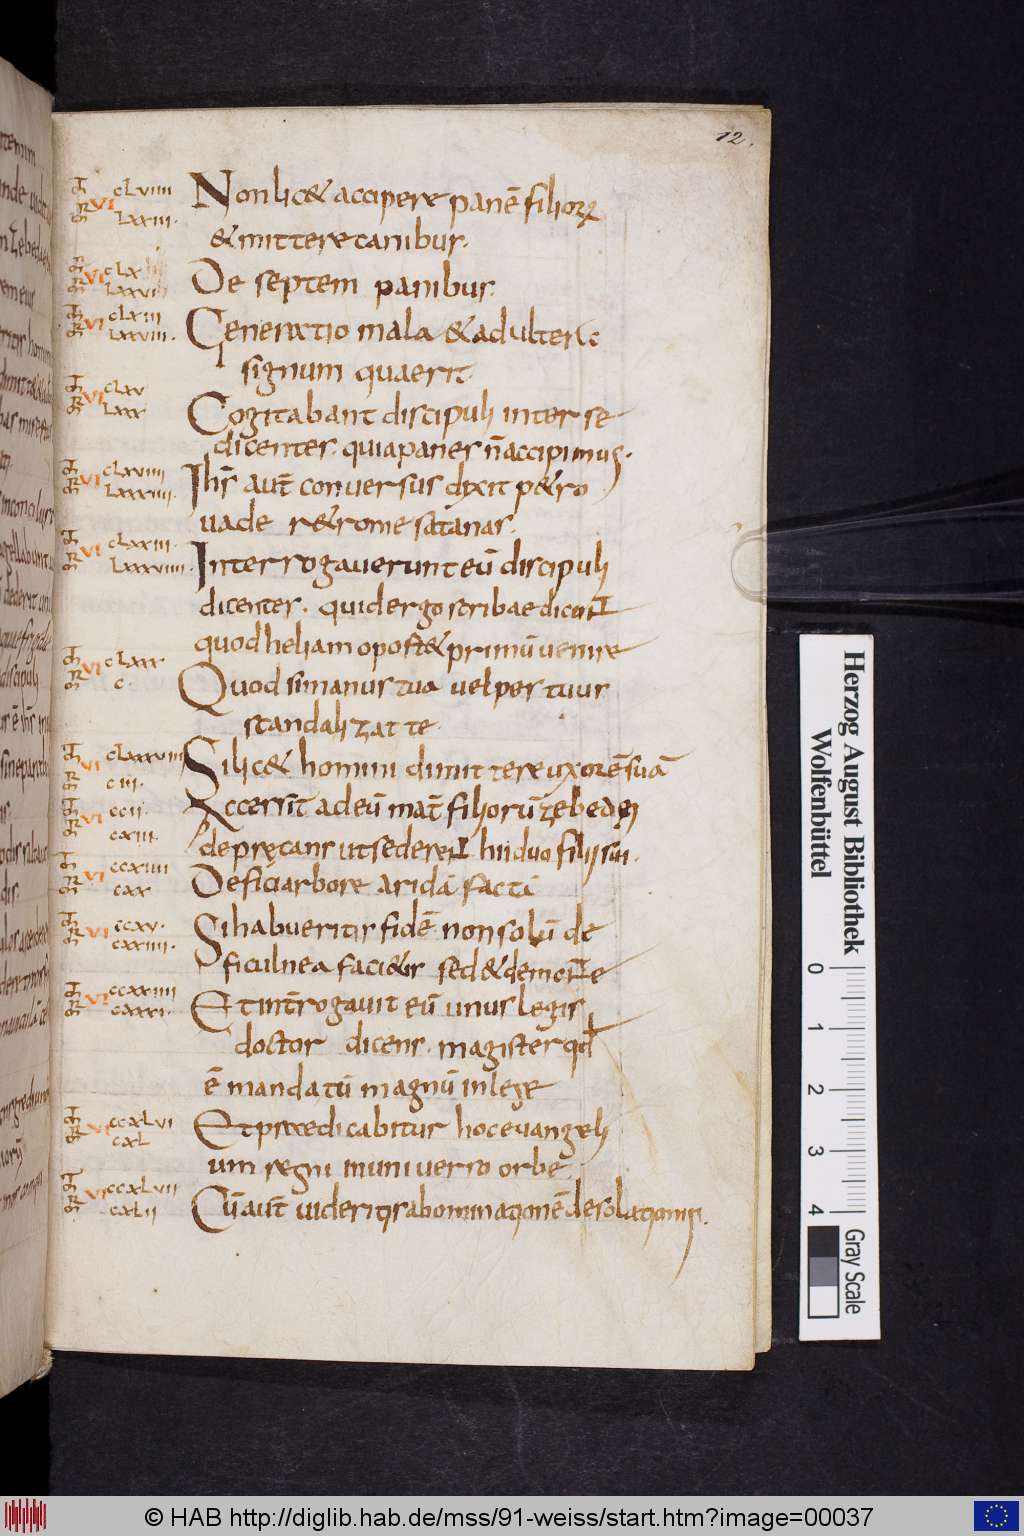 12.
CLVIIII Non lic& accipere panē filiorꝝ
VI
LXXIII. & mittere canibus.
CLX De septem panibus.
VI
LXXVI
CLXIII Generatio mala & adultera
VI
LXXVIII. signum quaerit.
CLXV Cogitabant discipuli inter se
VI
LXXX dicentes. quia panes n̄ accipimus.
CLXVIIII Ih̄s aut̄ conversus dixit p&ro
VI
LXXXIIII. vade r&rome satanas.
CLXXIII. Interrogaverunt eū discipuli
VI
LXXXVIIII. dicentes. quid ergo scribae dicunt
quod heliam oport& primū venire
CLXXX Quod si manus tua vel pes tuus
VI
C. scandalizat te.
CLXXXVIII Si lic& homini dimittere uxorē suā
VI
CIII.
CCII. Accessit ad eū mat̄ filiorū zebedęi
VI
CXIII. deprecans ut seder& hii duo filii sui.
CCXIIII De fici arbore arida facta
VI
CXX
CCXV. Si habueritis fidē non solū de
VI
CXXIIII. ficulnea faci&is sed & de monte
CCXXIIII Et int̄rogavit eū unus legis
VI
CXXXI. doctor dicens. magister qđ
ē mandatū magnū in lege
CCXLVI Et praedicabitur hoc evangeli
VI
CXL um regni in universo orbe.
CCXLVII Cū aut̄ videritis abominationē desolationis.
VI
CXLII
Herzog August Bibliothek
Wolfenbüttel
0 1 2 3 4
Gray Scale
© HAB http://diglib.hab.de/mss/91-weiss/start.htm?image=00037